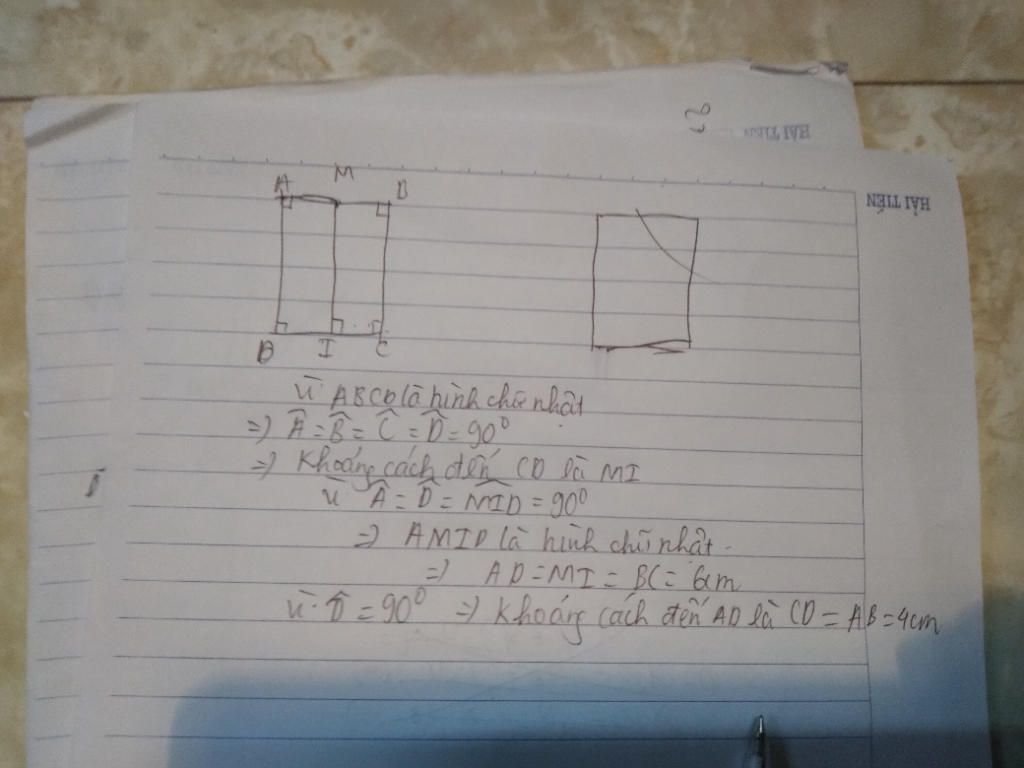 HẢI TIẾN
HẢI TIẾN
A M B
D I C
Vì ABCD là hình chữ nhật
=) Â = B̂ = Ĉ = D̂ = 90⁰
=) Khoảng cách đến CD là MI
Vì Â = D̂ = MID̂ = 90⁰
=) AMID là hình chữ nhật.
=) AD = MI = BC = 6cm
Vì D̂ = 90⁰ =) Khoảng cách đến AD là CD = AB = 4cm